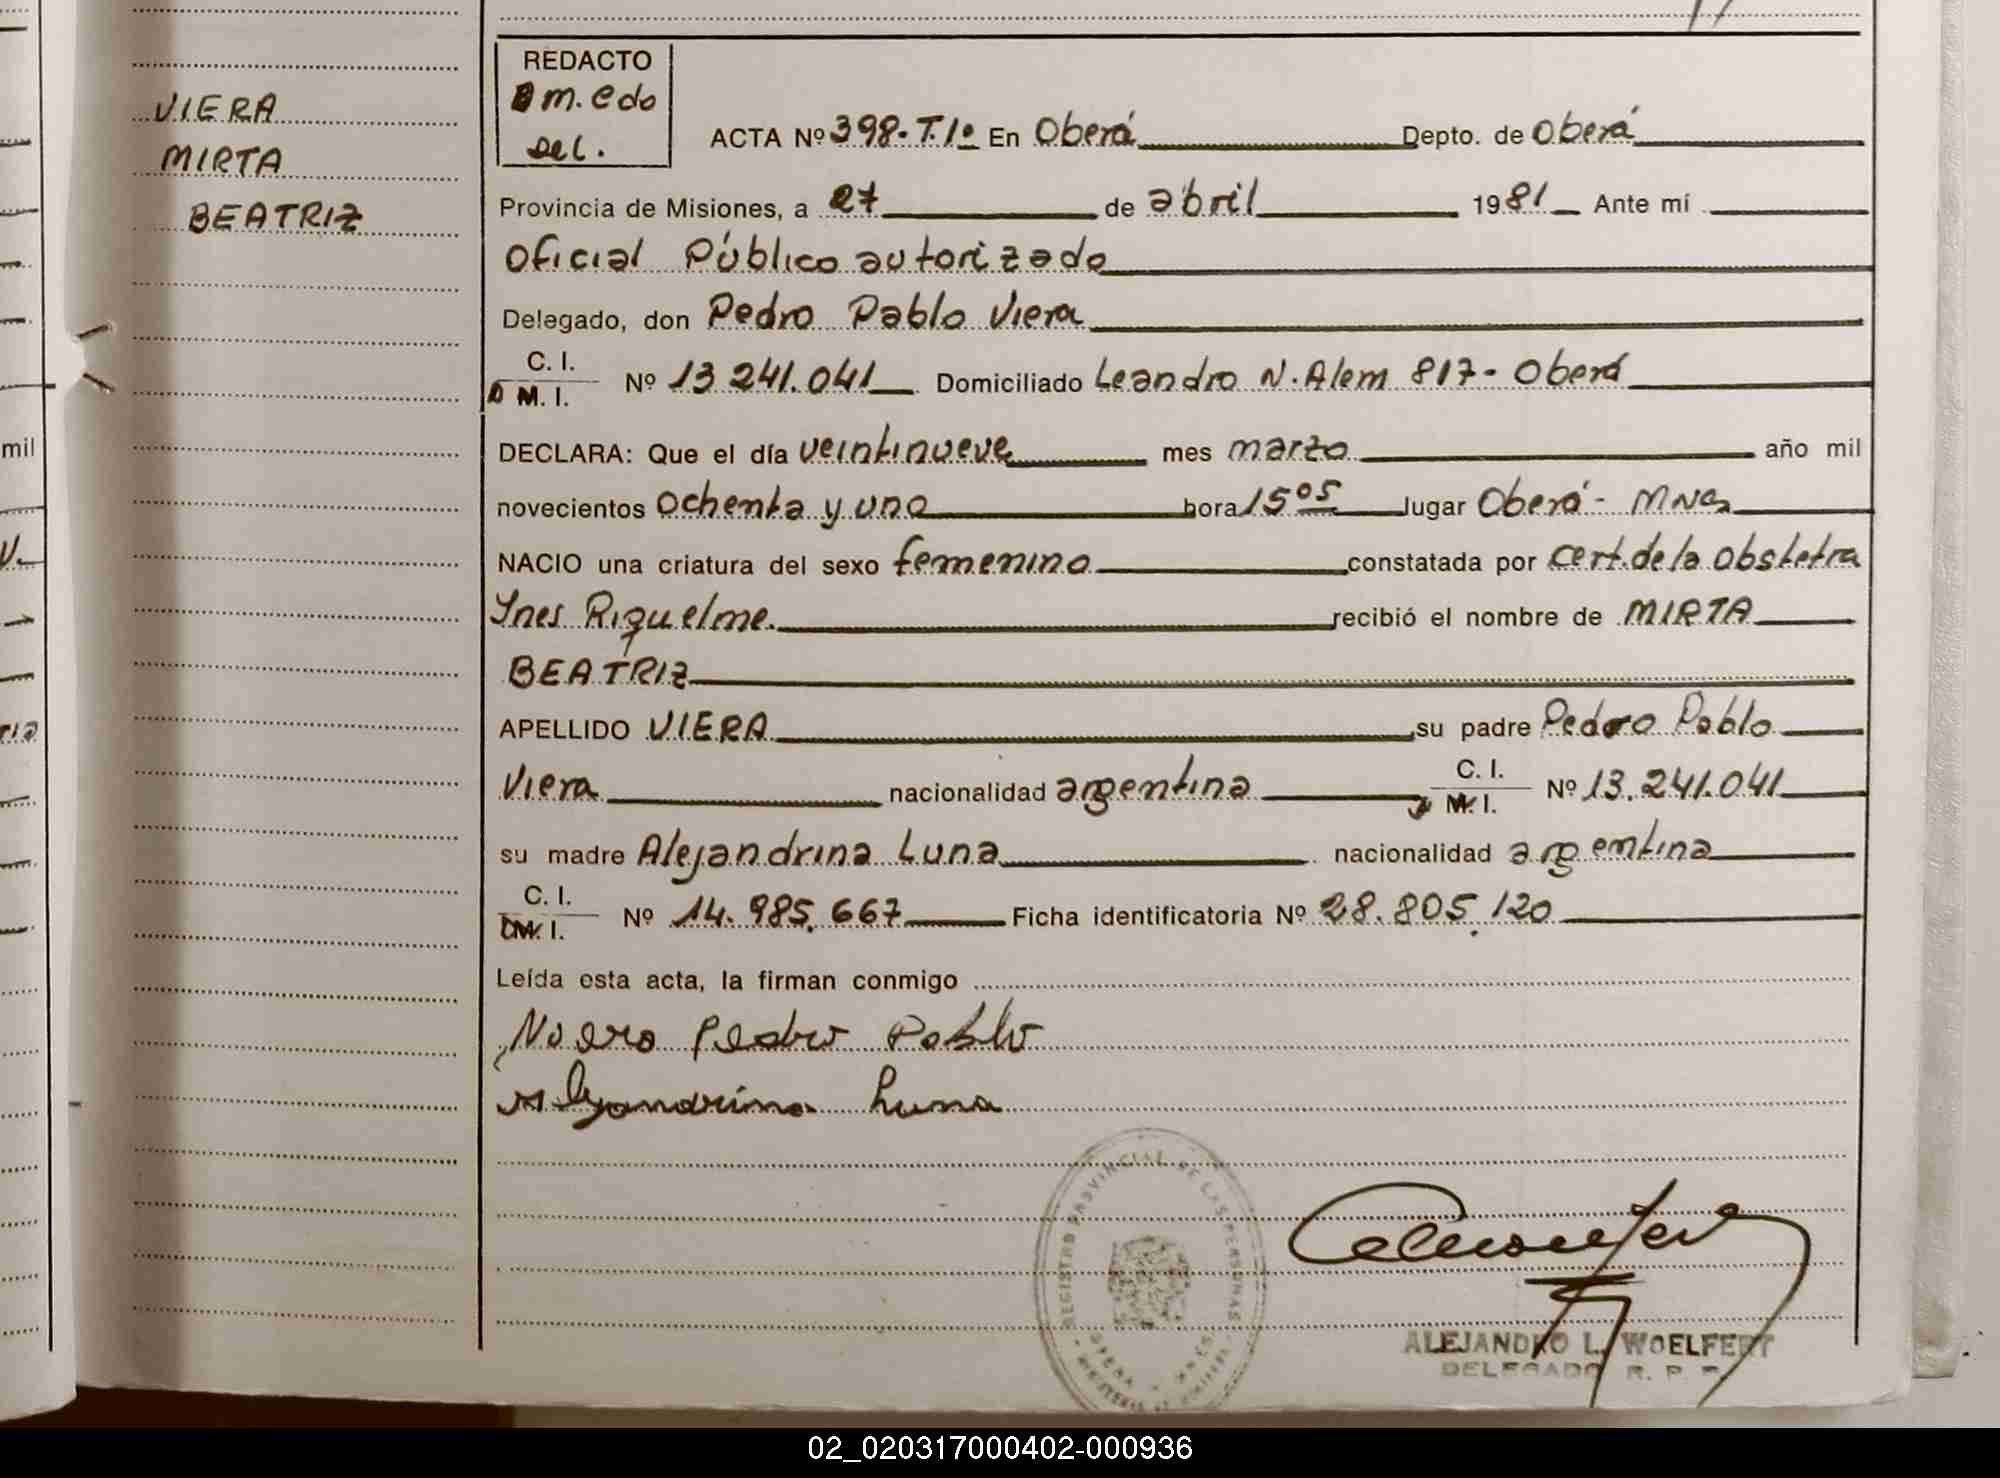 VIERA
MIRTA
BEATRIZ
REDACTO
m. edo
Del.
ACTA Nº 398-T.Iº En Oberá Depto. de Oberá
Provincia de Misiones, a 27 de abril 1981 Ante mí
Oficial Público autorizado
Delegado, don Pedro Pablo Viera
C. I.
D M. I. Nº 13.241.041 Domiciliado Leandro N. Alem 817 - Oberá
DECLARA: Que el día veintinueve mes marzo año mil
novecientos ochenta y uno hora 15 05 lugar Oberá - Mnes
NACIO una criatura del sexo femenino constatada por cert. de la obstetra
Ines Riquelme. recibió el nombre de MIRTA
BEATRIZ
APELLIDO VIERA su padre Pedro Pablo
Viera nacionalidad argentina C. I. M. I. Nº 13.241.041
su madre Alejandrina Luna nacionalidad argentina
C. I.
M. I. Nº 14.985.667 Ficha identificatoria Nº 28.805.120
Leída esta acta, la firman conmigo
Pedro Pablo
Alejandrina Luna
REGISTRO PROVINCIAL DE LAS PERSONAS
ALEJANDRO L. WOELFERT
DELEGADO R. P. P.
mil
02_020317000402-000936